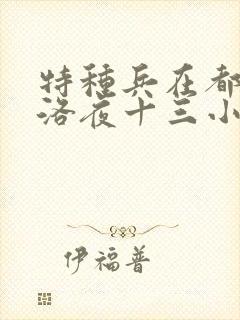 特種兵在都
洛夜十三小
伊福普